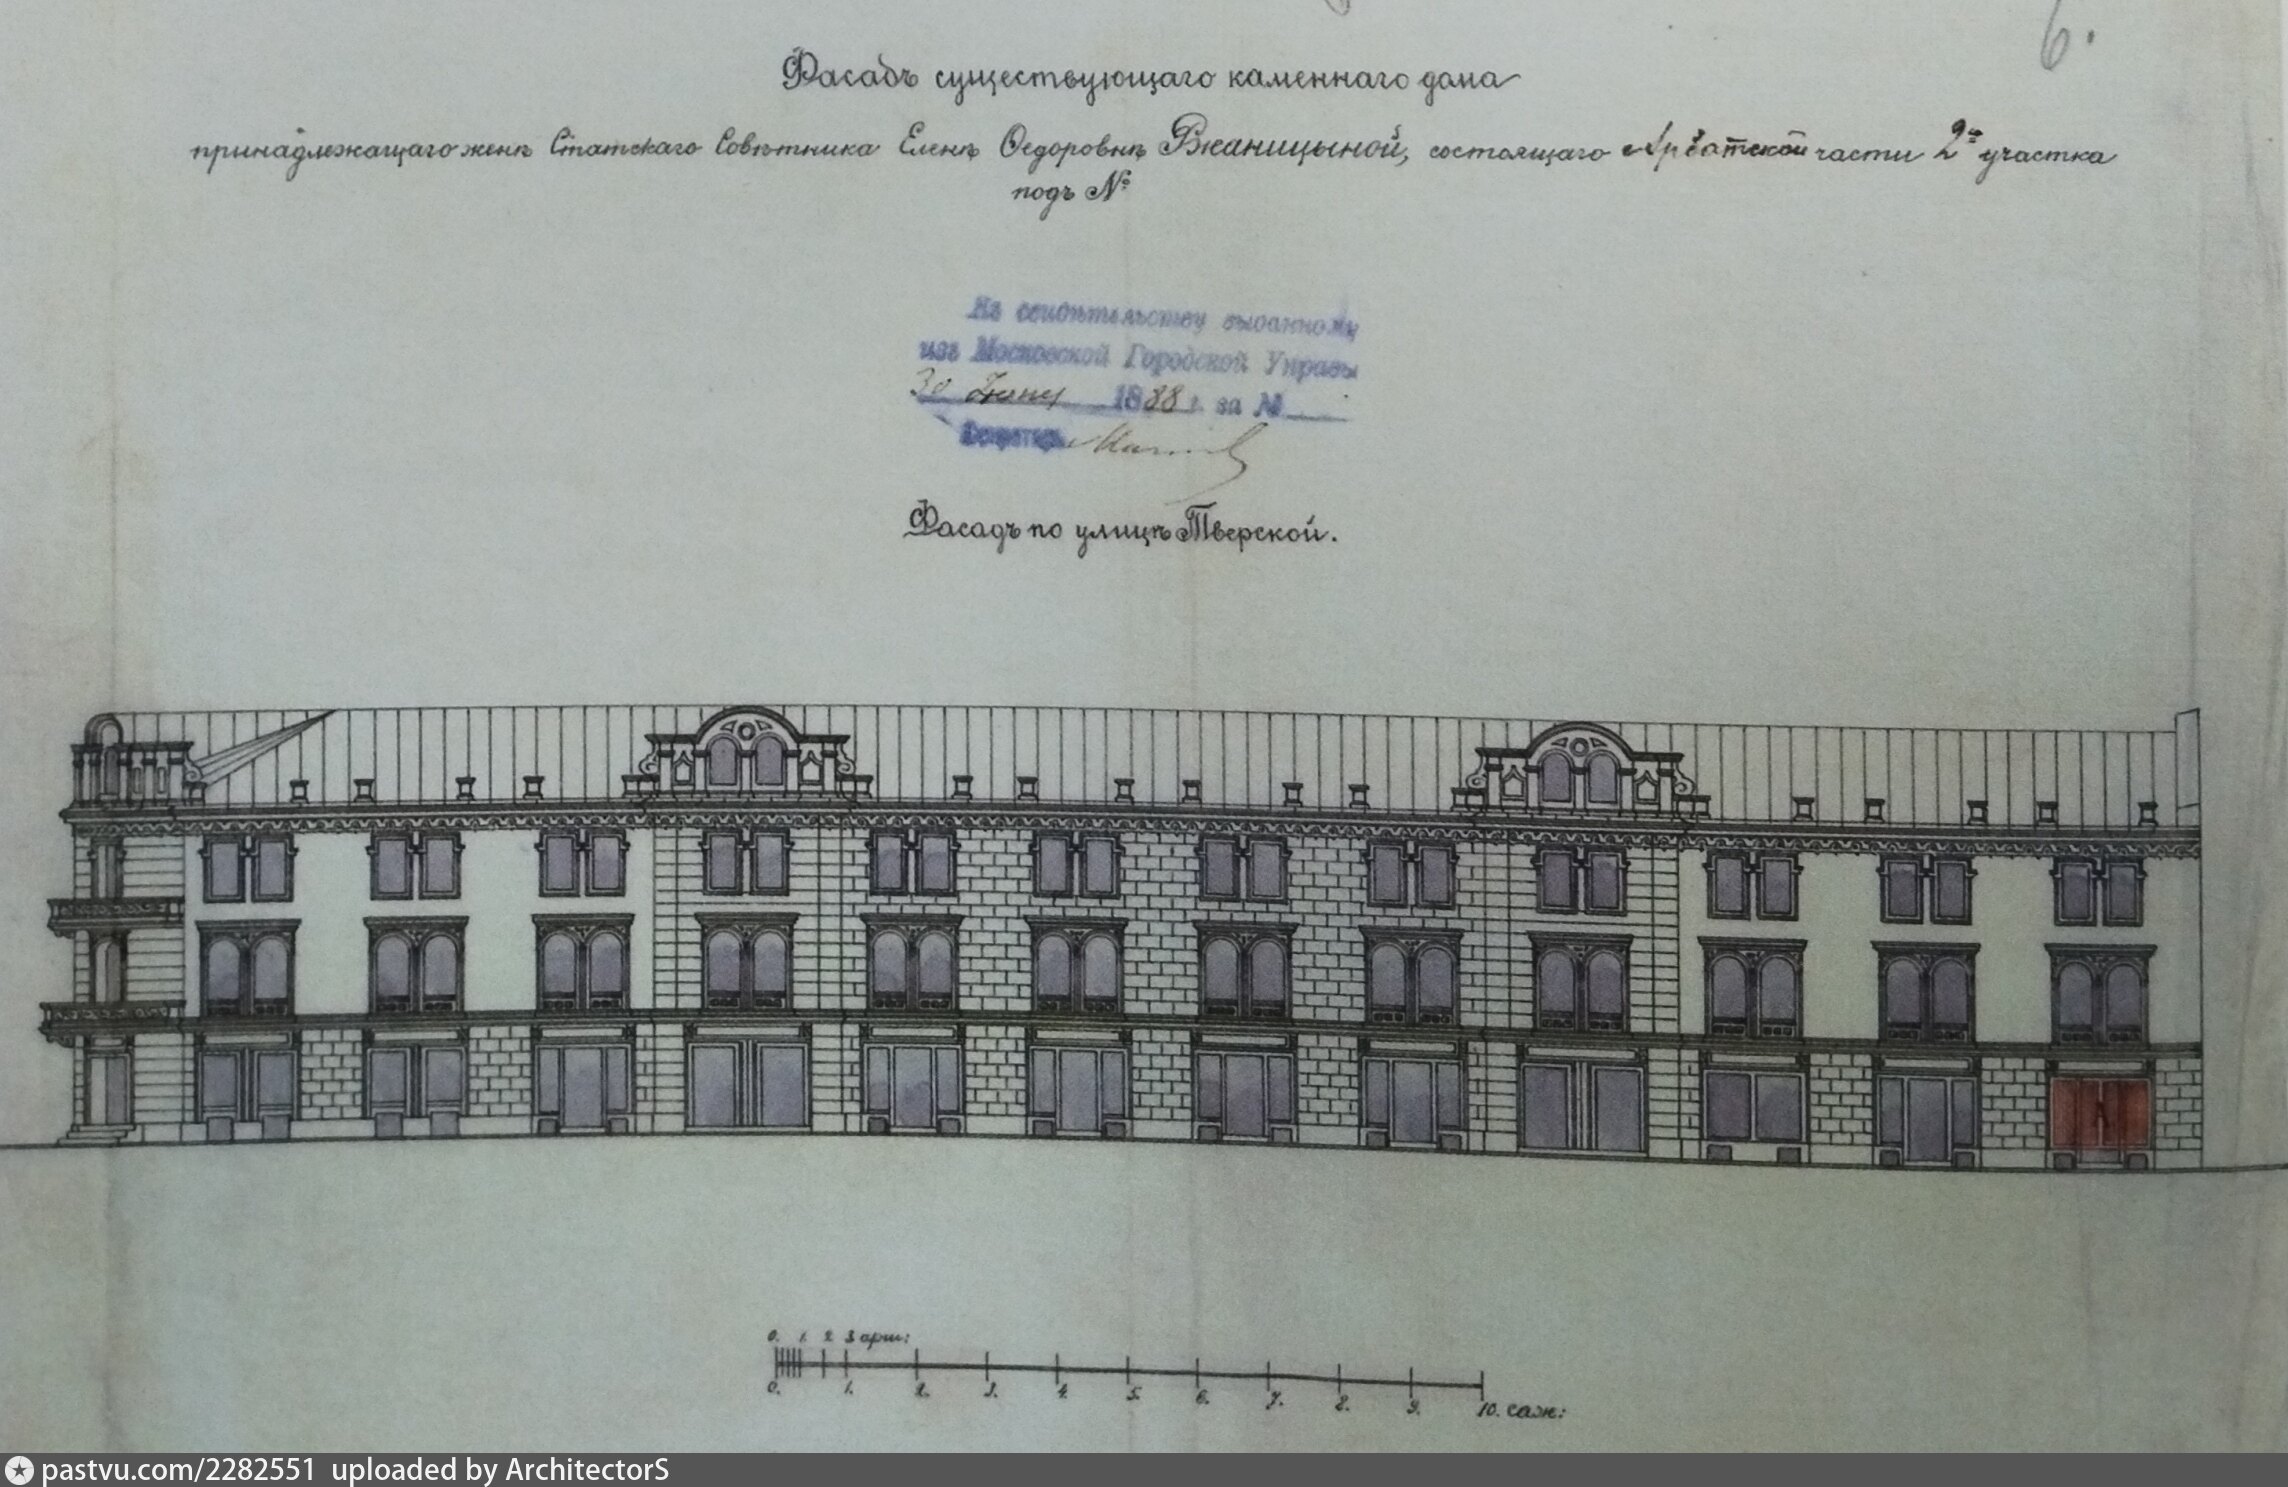 6.
Фасадъ существующаго каменнаго дома
принадлежащаго женѣ Статскаго Совѣтника Еленѣ Ѳедоровнѣ Ржаницыной, состоящаго Арбатской части 2го участка
подъ №
Къ свидѣтельству выданному
изъ Московской Городской Управы
30 Іюня 1888 г. за №
Секретарь
Фасадъ по улицѣ Тверской.
0. 1. 2. 3 арш:
0. 1. 2. 3. 4. 5. 6. 7. 8. 9. 10. саж:
pastvu.com/2282551 uploaded by ArchitectorS